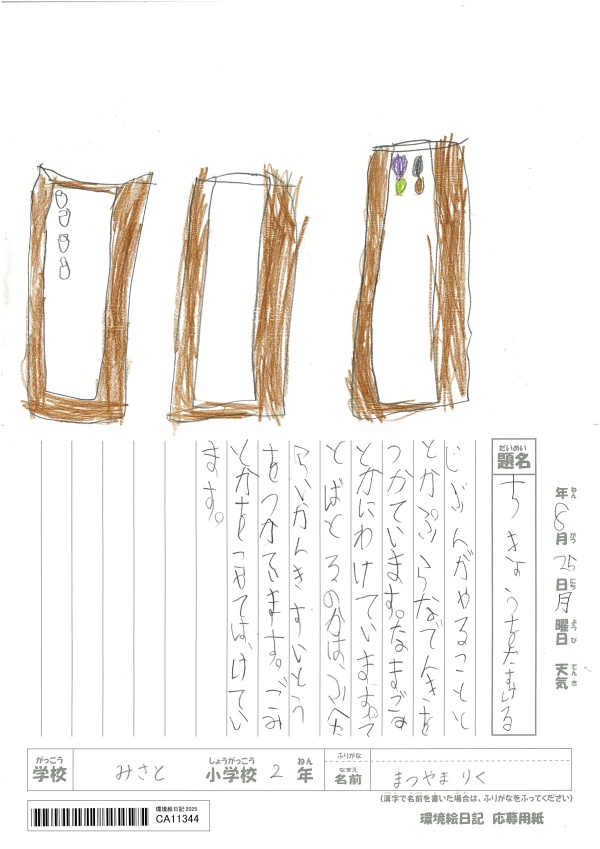 年8月25日月曜日 天気
ねん がつ にち ようび てんき
だいめい
題名
ちきょうをたすける
じぶんがやることと
とかぷらなでんきを
つかています。なまごみ
とかにわけています。て
とばとるのかは、ふへた
らいかんきすいとう
をつかてます。ごみ
とかをこせては、けてい
ます。
がっこう
学校 みさと
しょうがっこう ねん
小学校 2年
ふりがな
なまえ
名前 まつやま りく
(漢字で名前を書いた場合は、ふりがなをふってください)
環境絵日記 2025
CA11344
環境絵日記 応募用紙